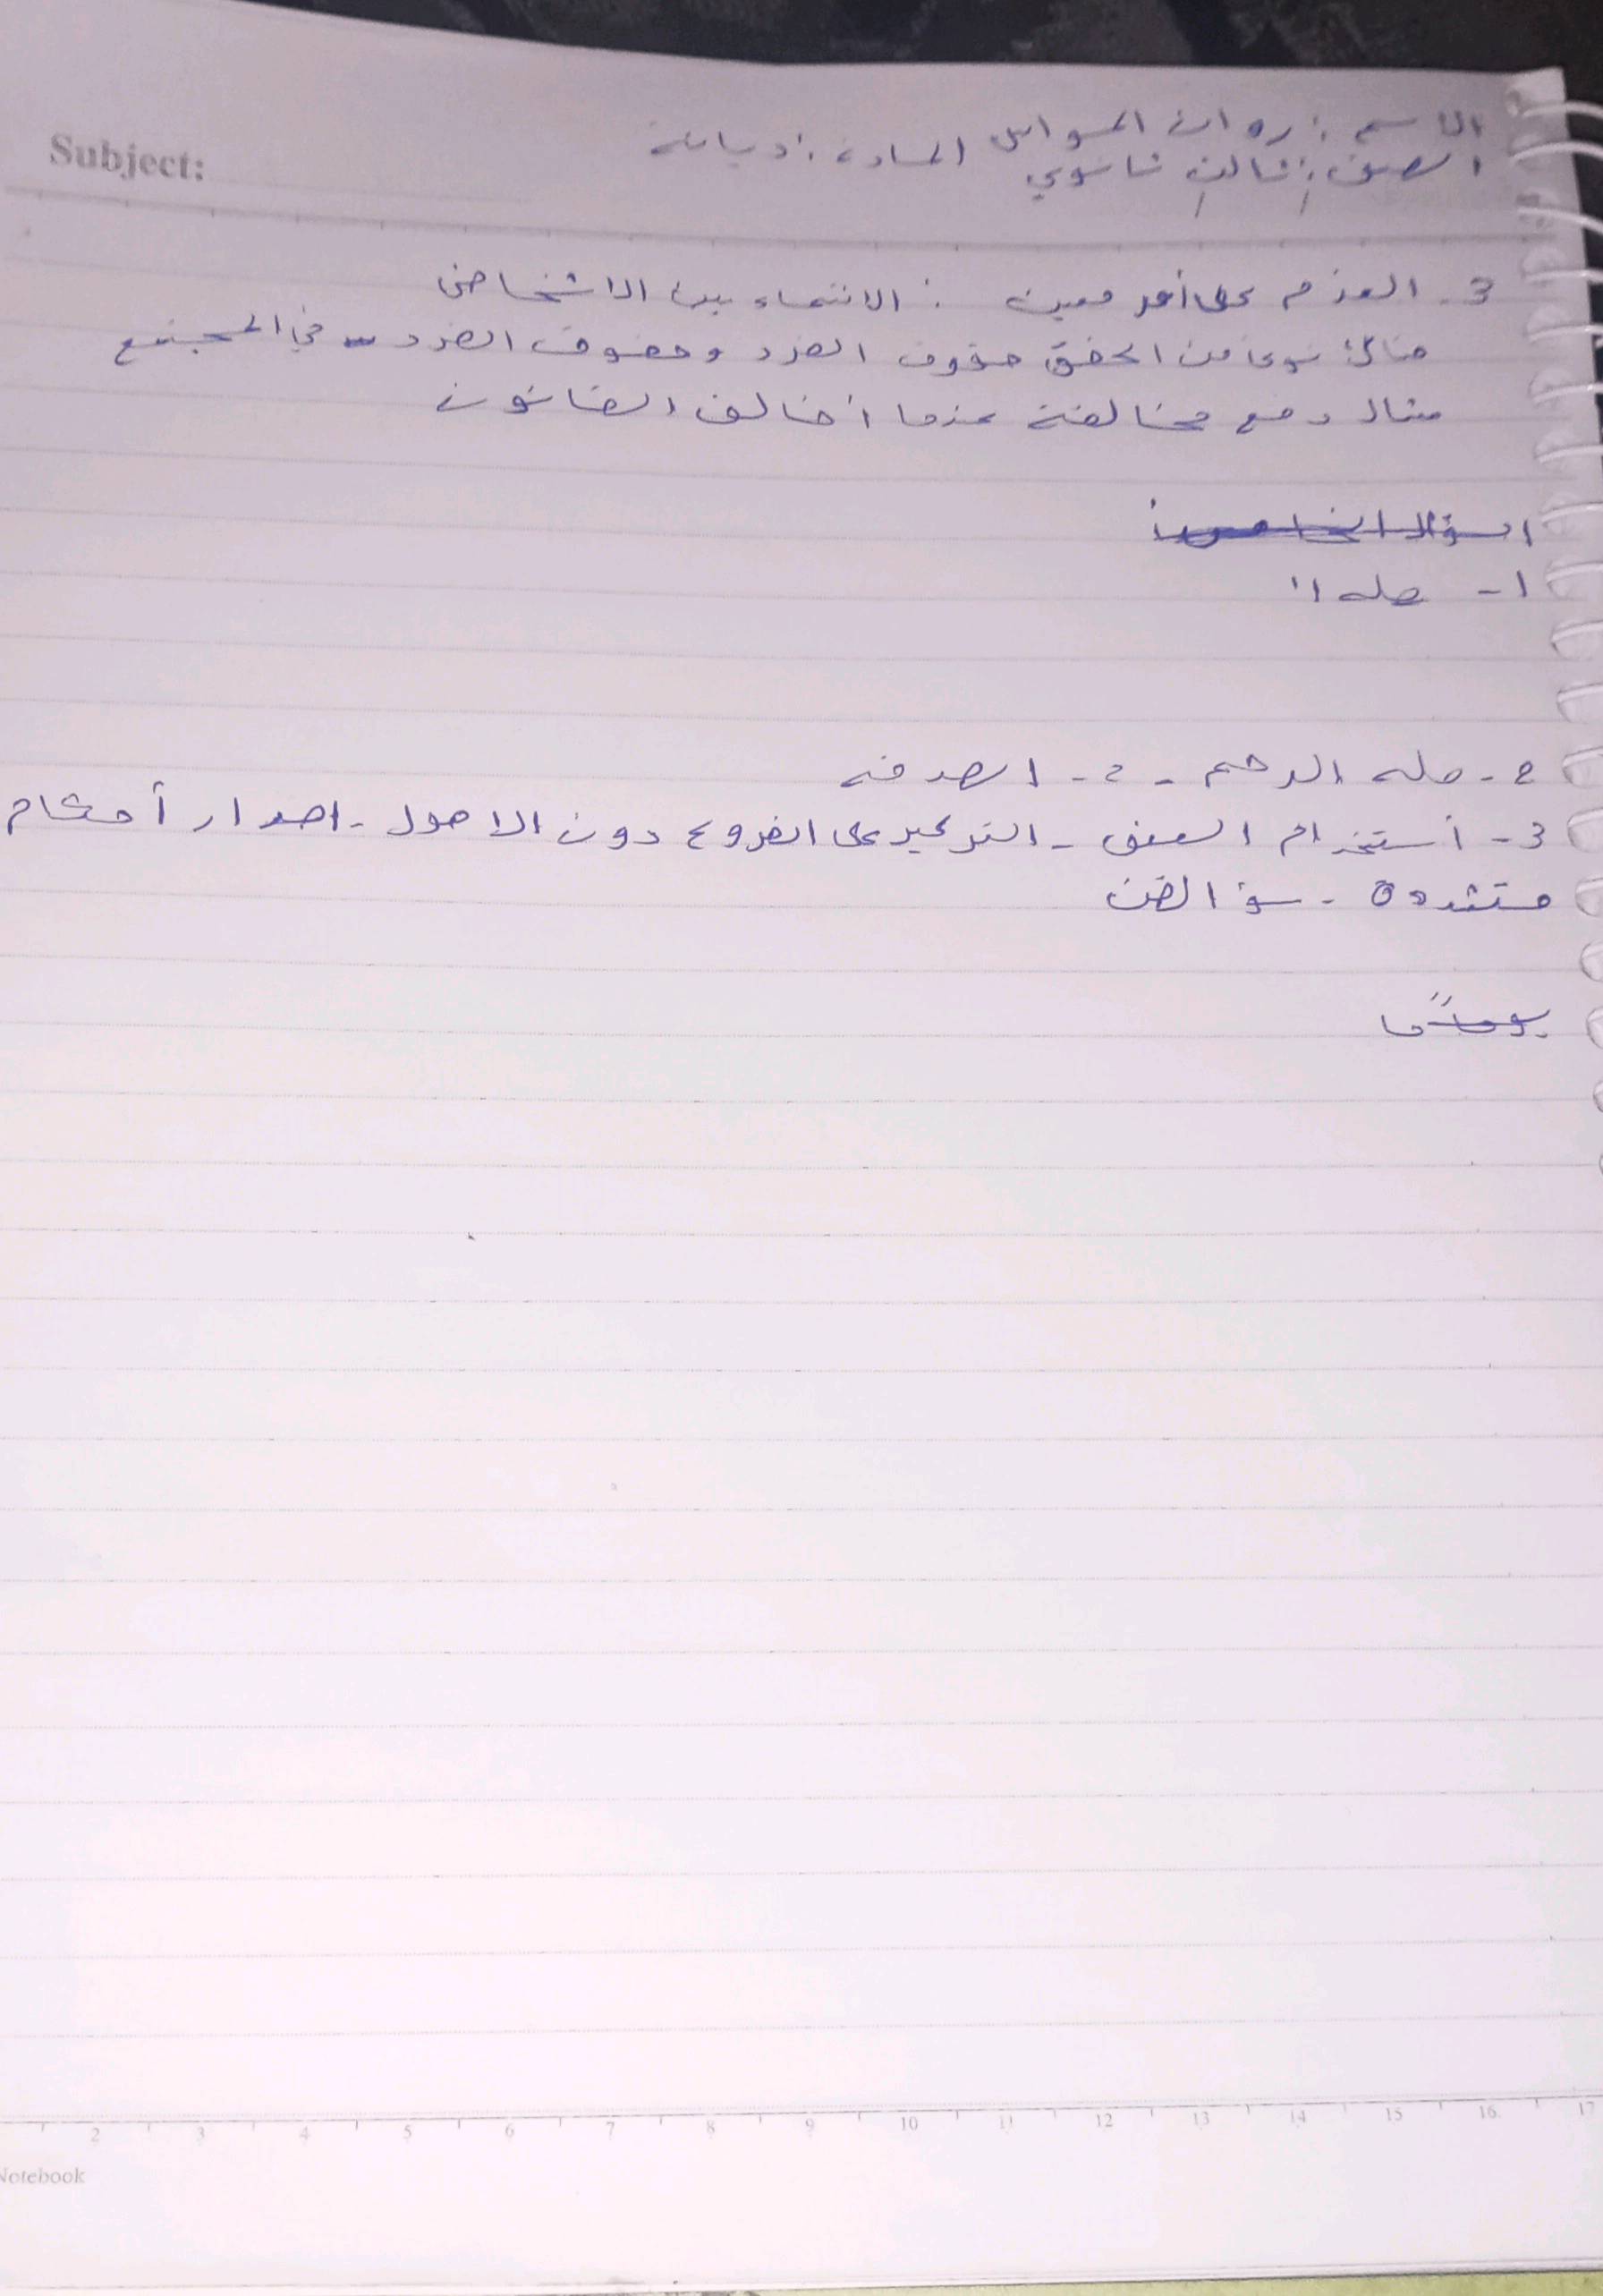 Subject:
الاسم : روان السوايس المادة : ديانة
الصف : ثالث ثانوي
3- العزم على أمر معين : الانتماء بين الاشخاص
هناك نوعا من الحقق حقوق الفرد وحقوق الفرد في المجتمع
مثال دفع مخالفة عندما أخالف القانون
السؤال الخامس:
1- صله ا
2- صله الرحم - 2- الصدقه
3- أستخدام العنف - التركيز على الفروع دون الاصول - اصدار أحكام
متشددة - سؤ الضن
2 3 4 5 6 7 8 9 10 11 12 13 14 15 16 17
Notebook